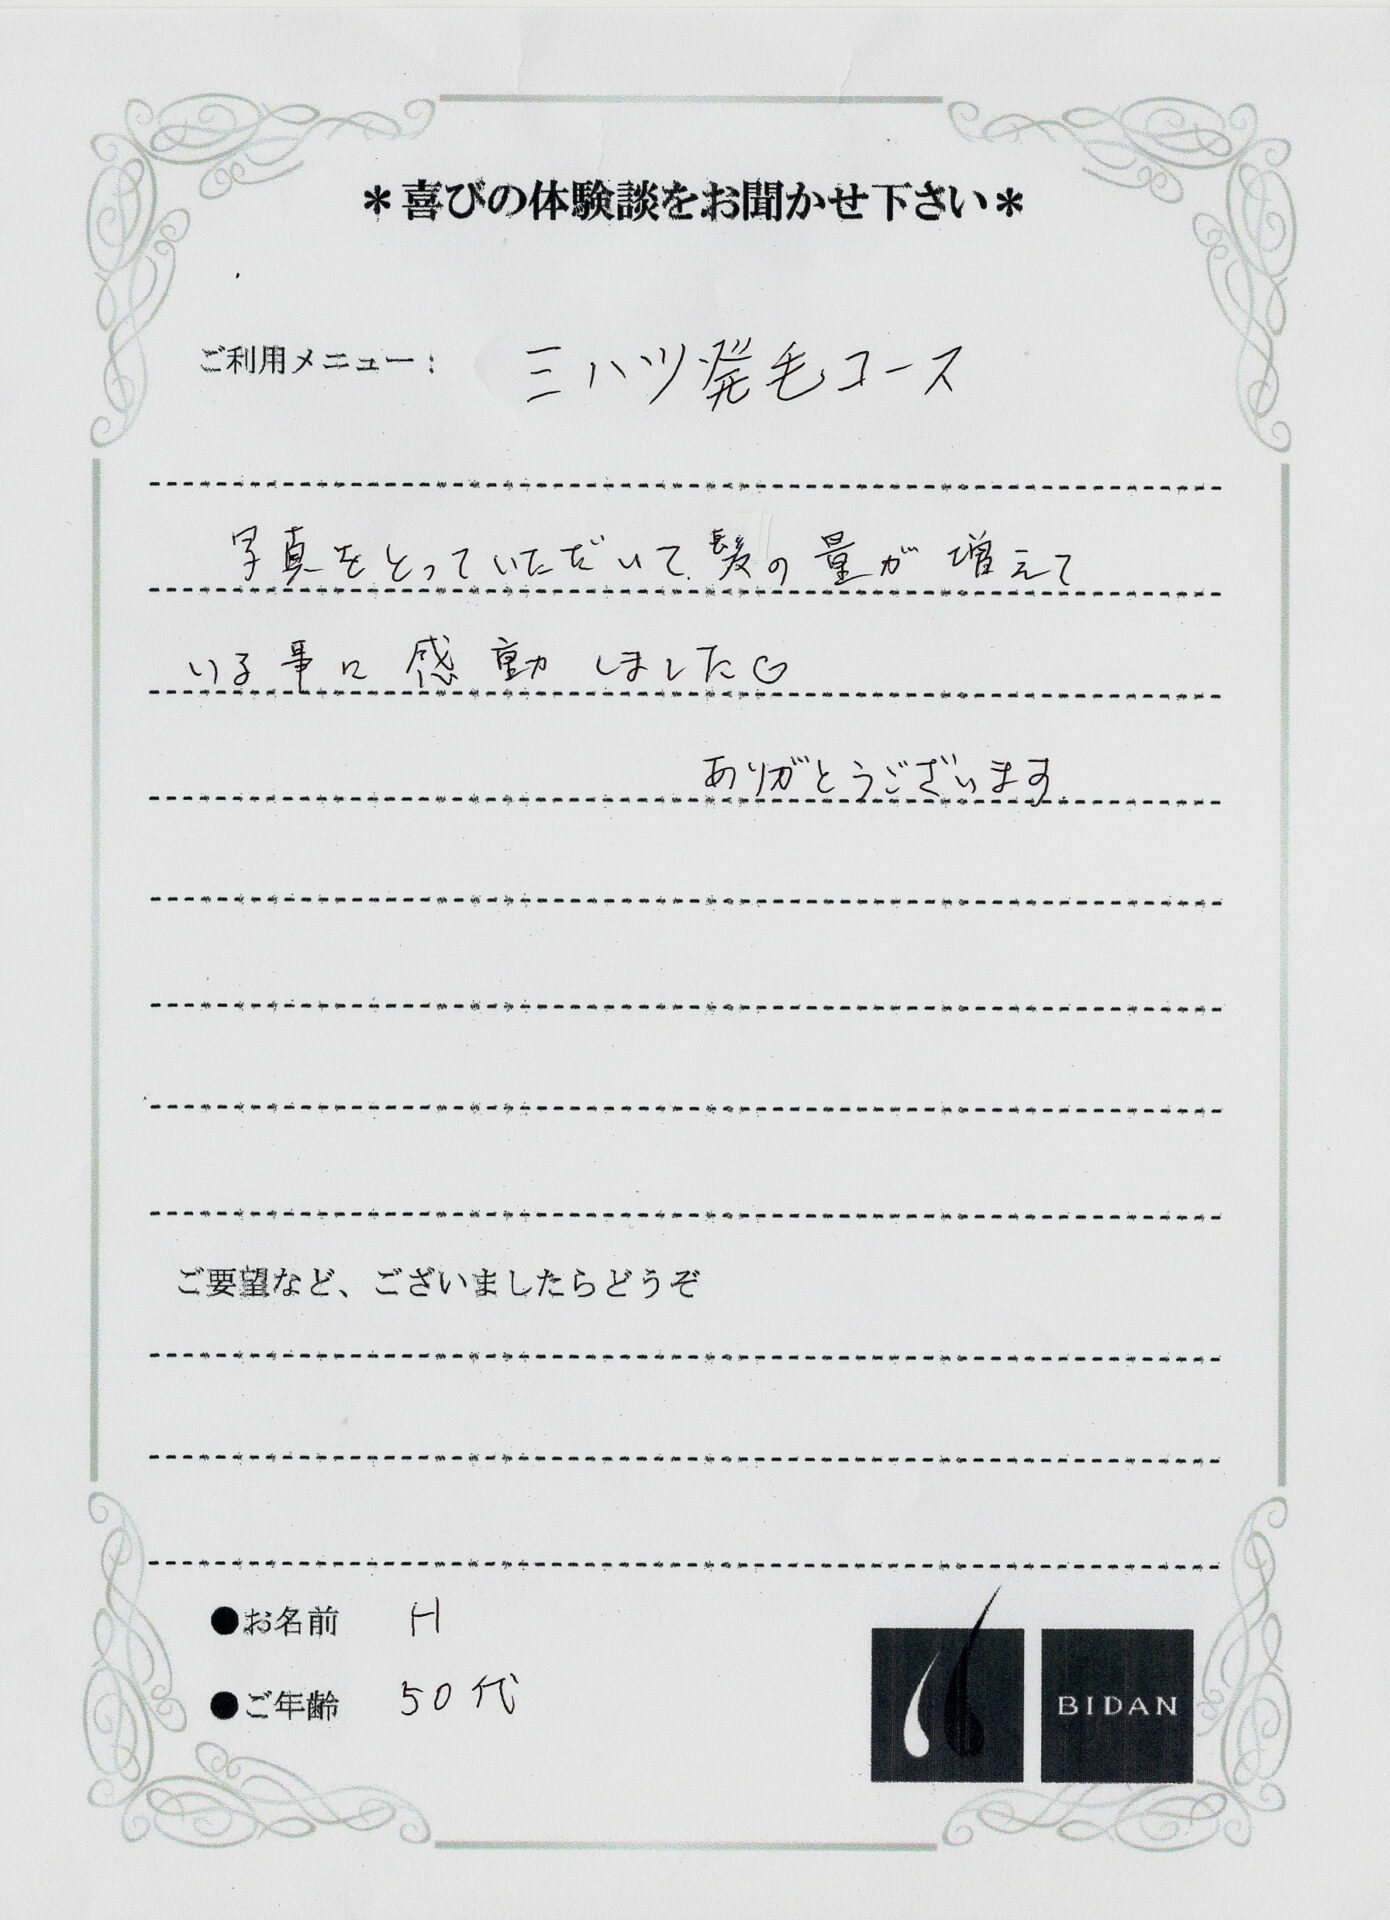 ＊喜びの体験談をお聞かせ下さい＊
ご利用メニュー： ミハツ発毛コース
写真をとっていただいて、髪の量が増えて
いる事に感動しました♡
ありがとうございます
ご要望など、ございましたらどうぞ
●お名前 H
●ご年齢 50代
BIDAN